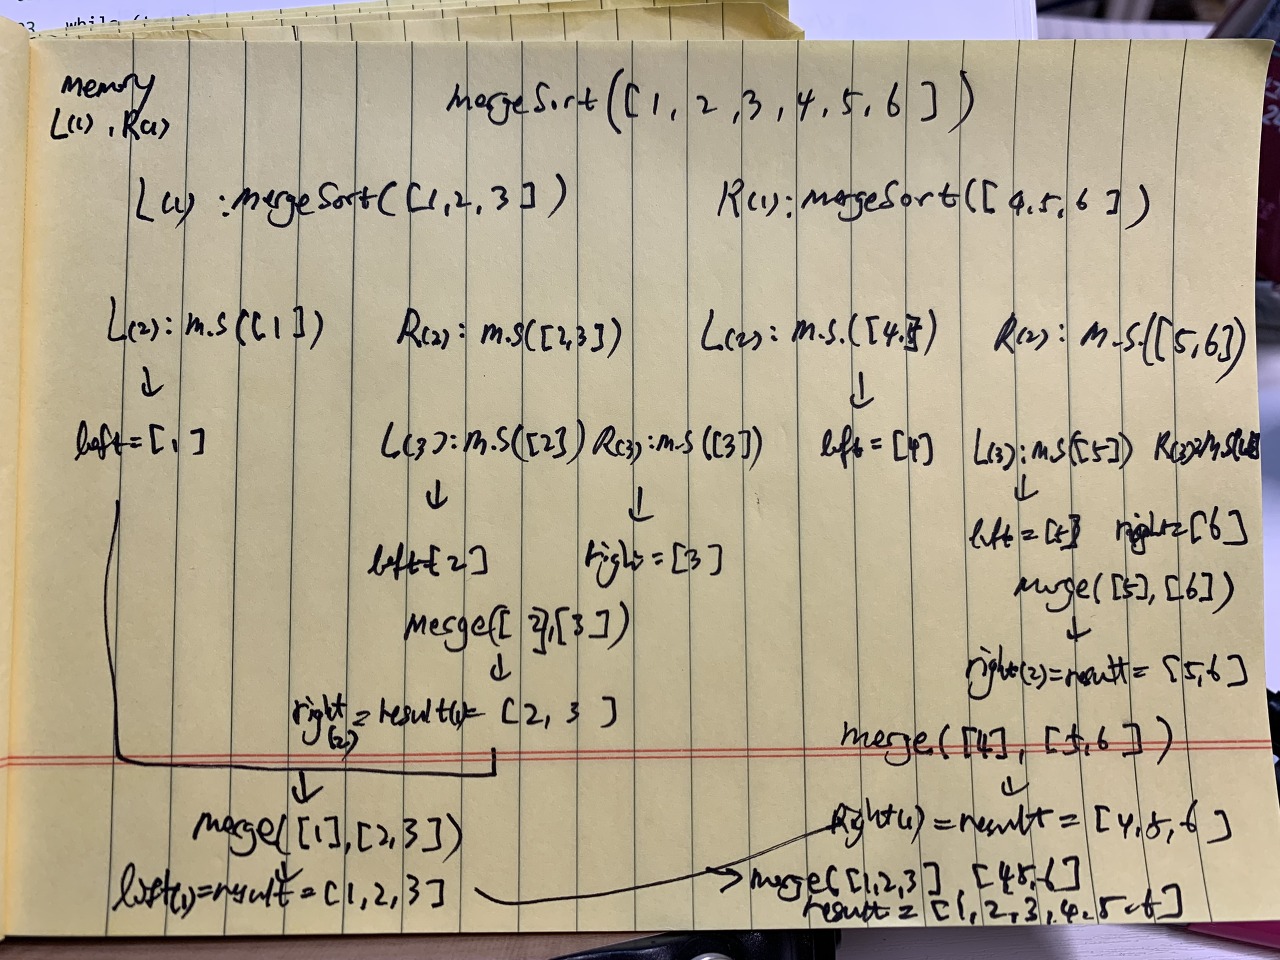 03 while (
memory
L(1), R(1)
mergeSort([1, 2, 3, 4, 5, 6])
L(1) : mergeSort([1, 2, 3])
R(1): mergeSort([4, 5, 6])
L(2): m.s([1])
R(2): m.s([2,3])
L(2): m.s.([4])
R(2): m.s.([5,6])
↓
↓
left=[1]
L(3): m.s([2]) R(3): m.s([3])
left = [4]
L(3): m.s([5]) R(3): m.s(
↓
↓
↓
left=[2]
right = [3]
left = [5] right=[6]
merge([2],[3])
merge([5],[6])
↓
↓
right(2) = result(1)= [2, 3]
right(2)=result = [5,6]
merge([4], [5,6])
↓
↓
merge([1],[2,3])
Right(1) = result = [4,5,6]
↓
left(1)=result = [1,2,3]
merge([1,2,3], [4,5,6]
result = [1, 2, 3, 4, 5, 6]